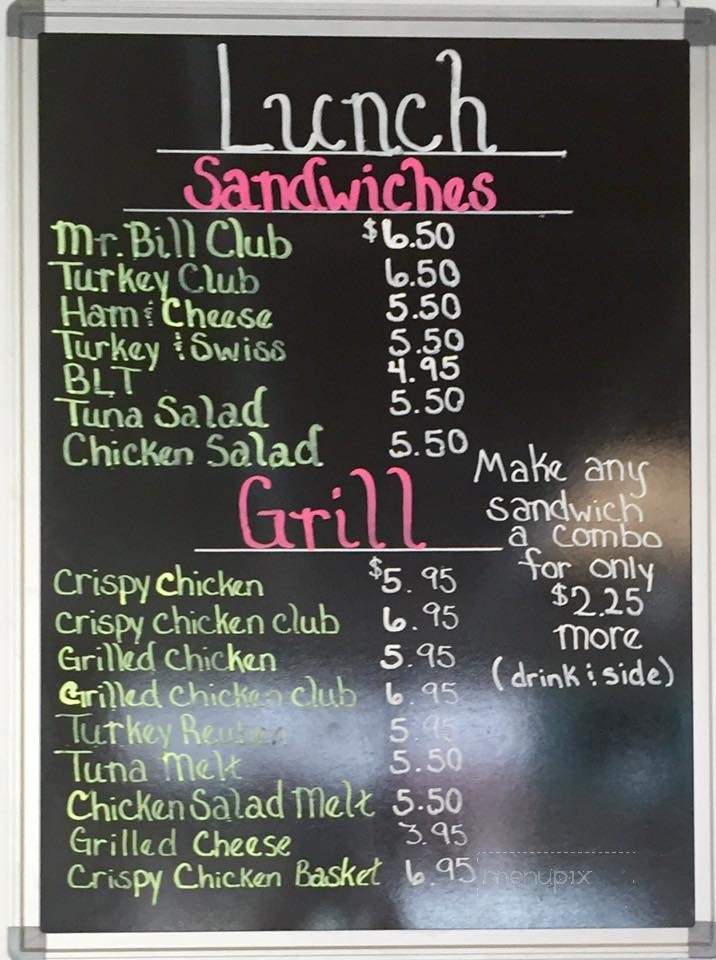 Lunch
Sandwiches
Mr. Bill Club $6.50
Turkey Club 6.50
Ham & Cheese 5.50
Turkey & Swiss 5.50
BLT 4.95
Tuna Salad 5.50
Chicken Salad 5.50
Make any
sandwich
a combo
for only
$2.25
more
(drink & side)
Grill
Crispy Chicken $5.95
Crispy Chicken club 6.95
Grilled Chicken 5.95
Grilled Chicken club 6.95
Turkey Reuben 5.95
Tuna Melt 5.50
Chicken Salad Melt 5.50
Grilled Cheese 3.95
Crispy Chicken Basket 6.95
menupix